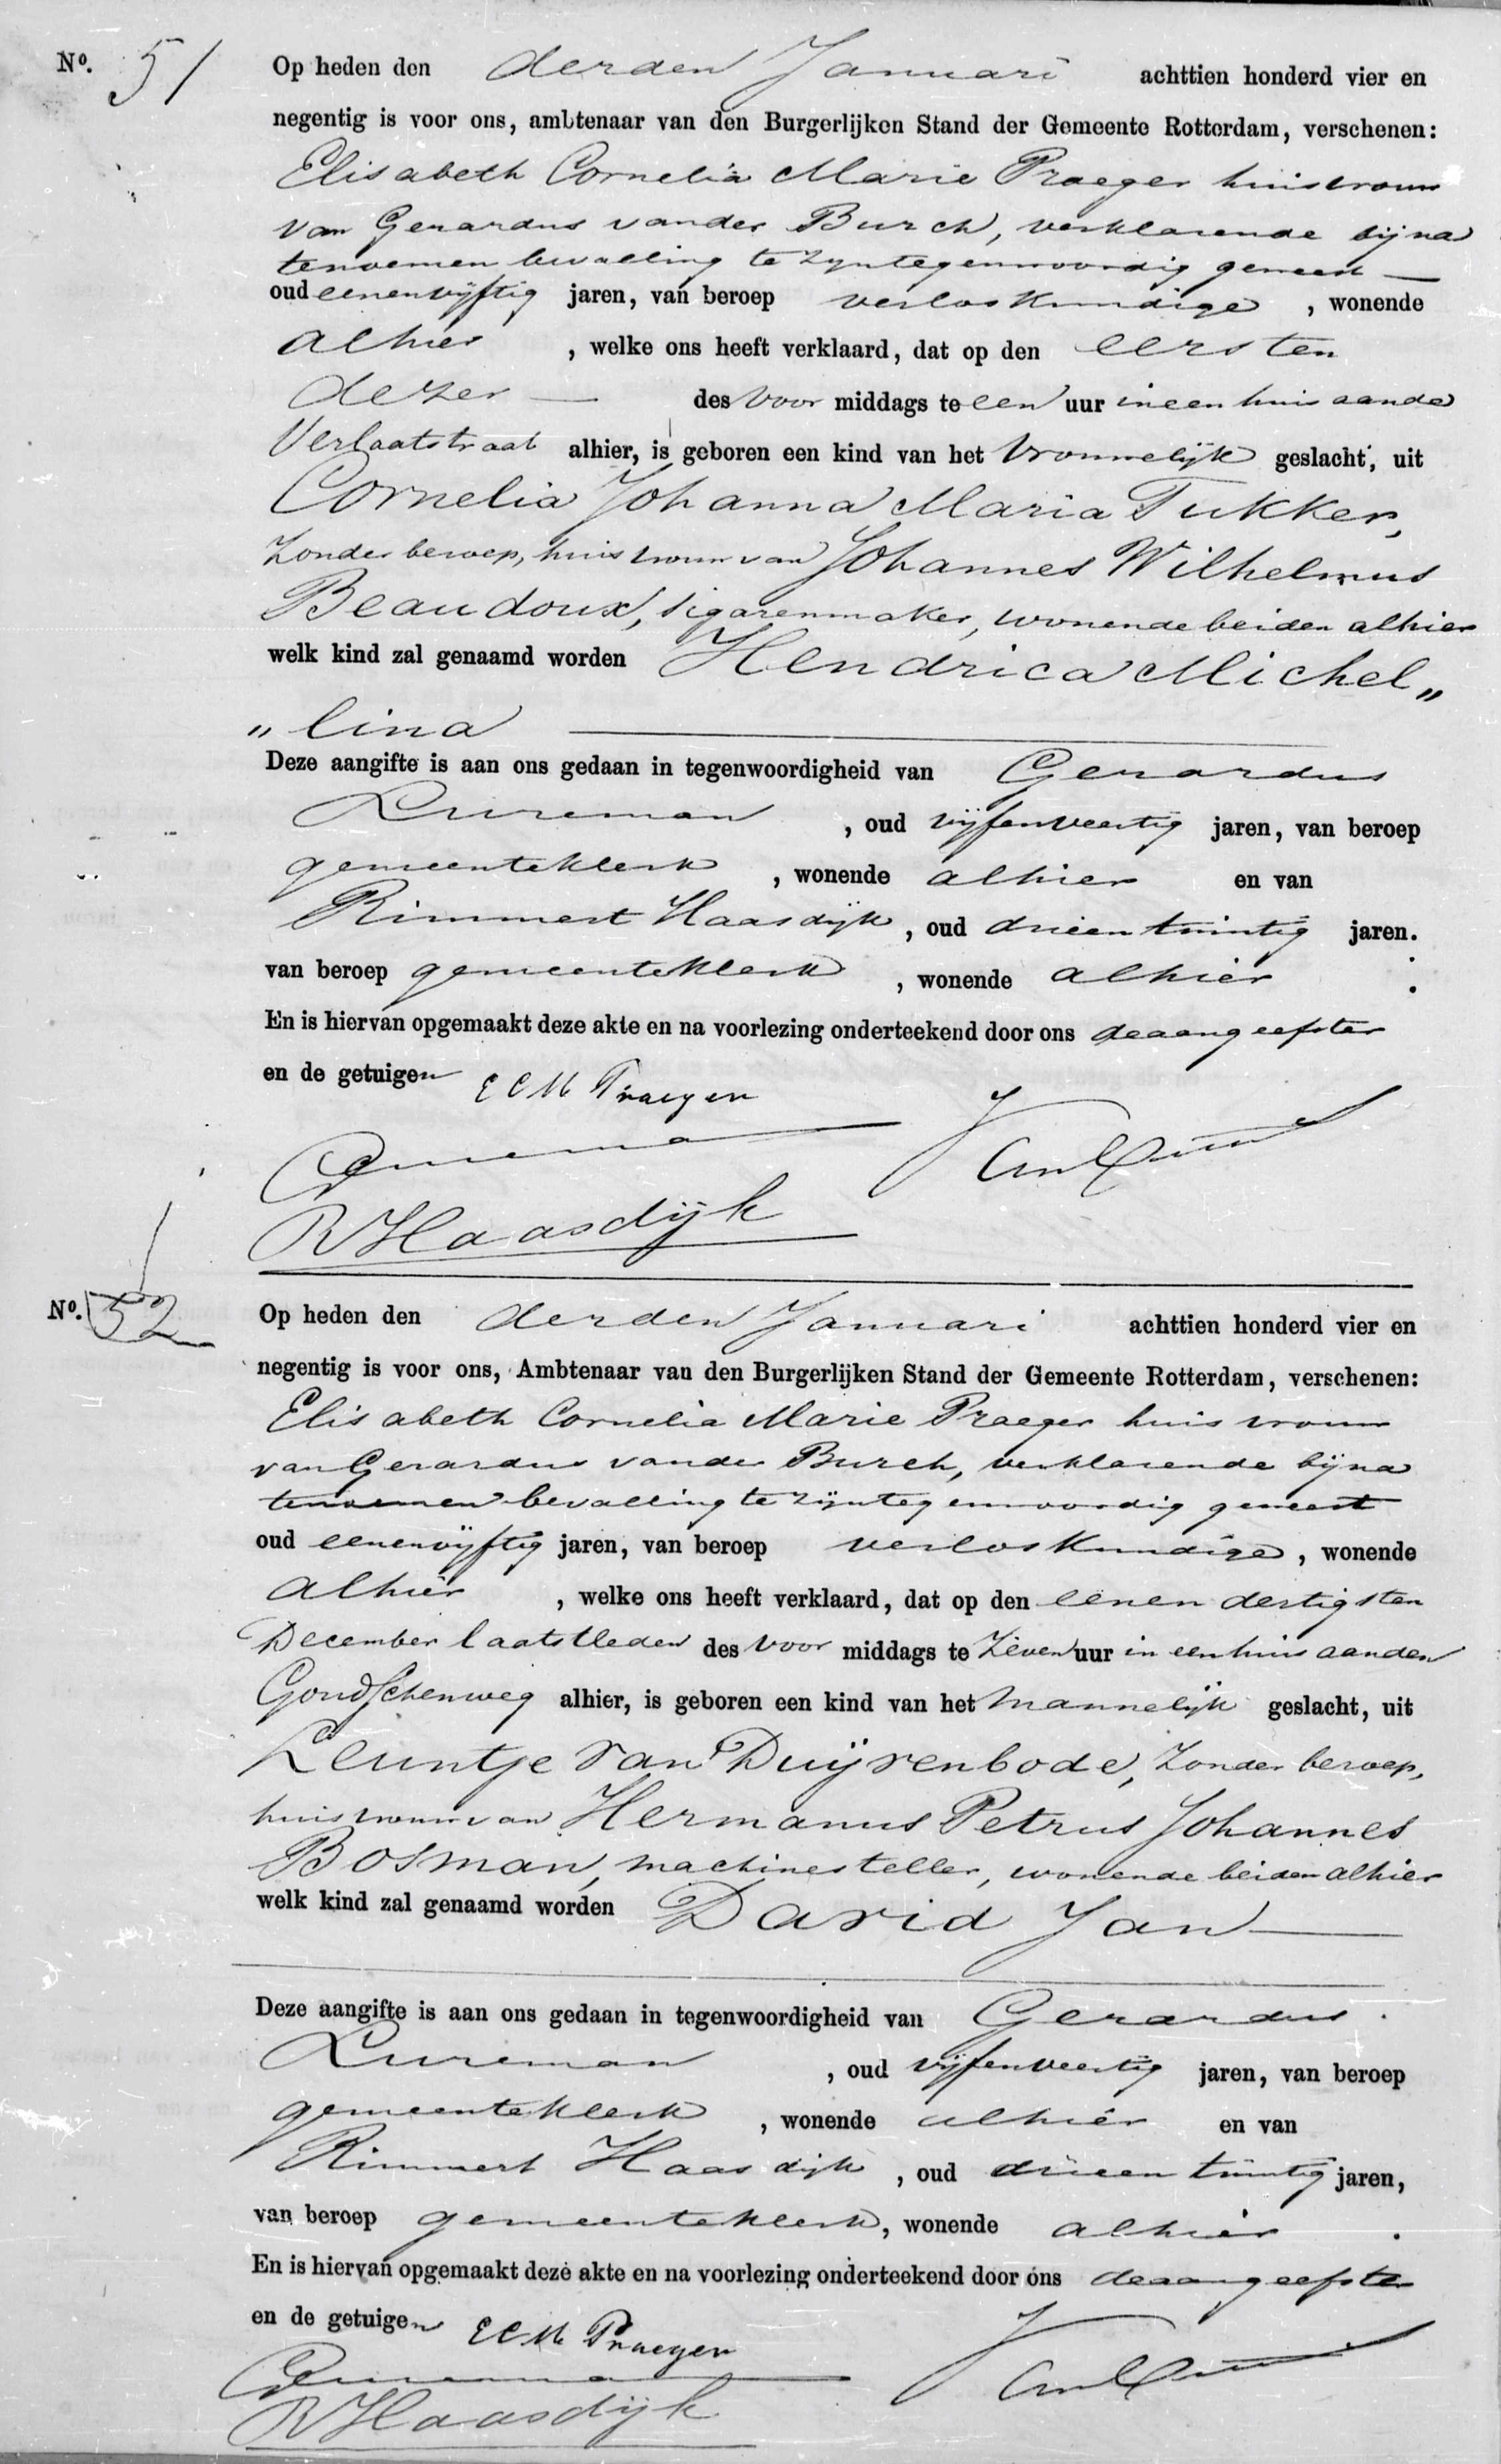 No. 51
Op heden den derden Januari achttien honderd vier en
negentig is voor ons, ambtenaar van den Burgerlijken Stand der Gemeente Rotterdam, verschenen:
Elisabeth Cornelia Marie Praeger huisvrouw
van Gerardus vander Burch, verklarende bij na
tenoemen bevalling te zijn tegenwoordig geweest
oud eenenvijftig jaren, van beroep verloskundige, wonende
alhier, welke ons heeft verklaard, dat op den eersten
dezer des voor middags te een uur in een huis aan de
Verlaatstraat alhier, is geboren een kind van het vrouwelijk geslacht, uit
Cornelia Johanna Maria Tukker,
zonder beroep, huisvrouw van Johannes Wilhelmus
Beaudoux, sigarenmaker, wonende beiden alhier
welk kind zal genaamd worden Hendrica Michel„
„lina
Deze aangifte is aan ons gedaan in tegenwoordigheid van Gerardus
Lureman, oud vijfenveertig jaren, van beroep
gemeenteklerk, wonende alhier en van
Rimmert Haasdijk, oud drieentwintig jaren.
van beroep gemeenteklerk, wonende alhier.
En is hiervan opgemaakt deze akte en na voorlezing onderteekend door ons de aangeefster
en de getuigen E C M Praeger
R Haasdijk
No. 52
Op heden den derden Januari achttien honderd vier en
negentig is voor ons, Ambtenaar van den Burgerlijken Stand der Gemeente Rotterdam, verschenen:
Elisabeth Cornelia Marie Praeger huisvrouw
van Gerardus vander Burch, verklarende bij na
tenoemen bevalling te zijn tegenwoordig geweest
oud eenenvijftig jaren, van beroep verloskundige, wonende
alhier, welke ons heeft verklaard, dat op den eenendertigsten
December laatstleden des voor middags te zeven uur in een huis aan den
Goudschenweg alhier, is geboren een kind van het mannelijk geslacht, uit
Leuntje van Duijvenbode, zonder beroep,
huisvrouw van Hermanus Petrus Johannes
Bosman, machinesteller, wonende beiden alhier
welk kind zal genaamd worden David Jan
Deze aangifte is aan ons gedaan in tegenwoordigheid van Gerardus
Lureman, oud vijfenveertig jaren, van beroep
gemeenteklerk, wonende alhier en van
Rimmert Haasdijk, oud drieentwintig jaren,
van beroep gemeenteklerk, wonende alhier.
En is hiervan opgemaakt deze akte en na voorlezing onderteekend door ons de aangeefster
en de getuigen E C M Praeger
R Haasdijk